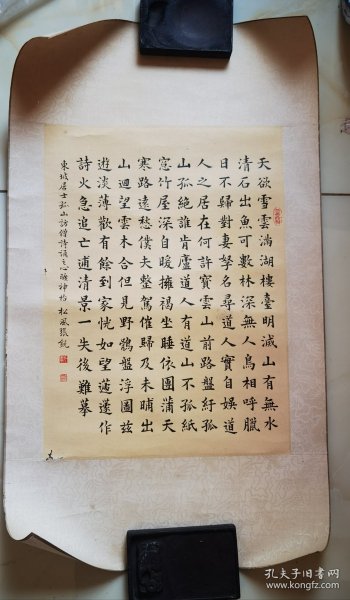 天欲雪雲滿湖樓臺明滅山有無水
清石出魚可數林深無人鳥相呼臘
日不歸對妻孥名尋道人實自娛道
人之居在何許寶雲山前路盤紆孤
山孤絕誰肯廬道人有道山不孤紙
窓竹屋深自暖擁褐坐睡依團蒲天
寒路遠愁僕夫整駕催歸及未晡出
山迴望雲木合但見野鶻盤浮圖茲
遊淡薄歡有餘到家恍如夢蘧蘧作
詩火急追亡逋清景一失後難摹
東坡居士孤山訪僧詩誦之心曠神怡 松風張
孔夫子旧书网
kongfz.com